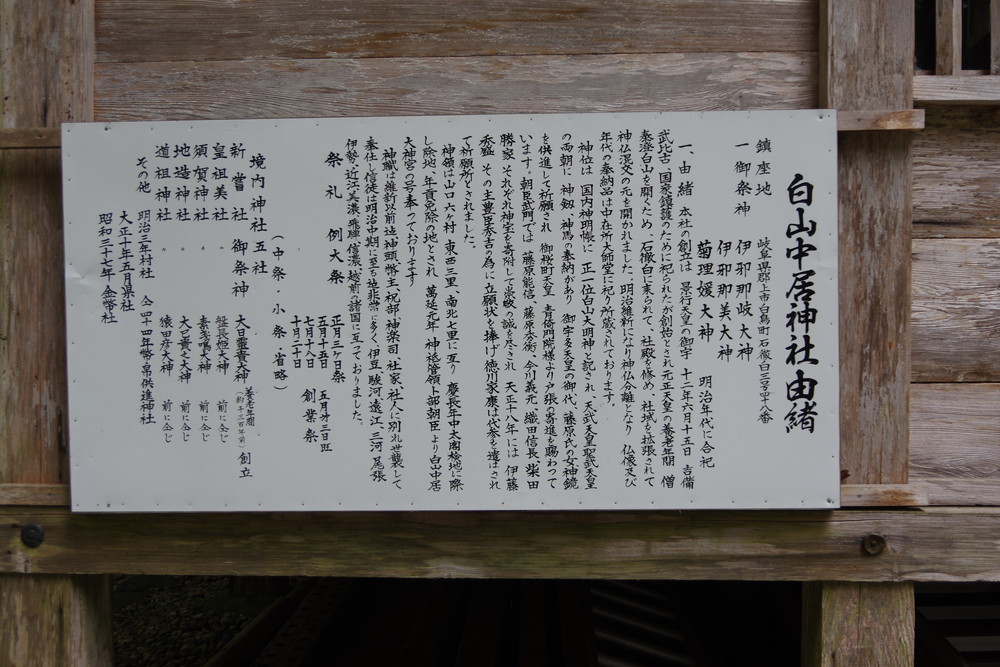 白山中居神社由緒
鎮座地 岐阜県郡上市白鳥町石徹白三号四十八番
一 御祭神 伊邪那岐大神
伊邪那美大神
菊理媛大神 明治年代に合祀
一、由緒 本社の創立は 景行天皇の御宇 十二年六月十五日 吉備
武比古 国家鎮護のために祀られたが創始とされ元正天皇の養老年間 僧
泰澄白山を開くため、石徹白に来られて、社殿を修め、社域を拡張されて
神仏混交の元を開かれました。明治維新になり神仏分離となり 仏像及び
年代の奉納品は中在所大師堂に祀り所蔵されております。
神位は 国内神明帳に 正一位白山大明神と記され 天武天皇聖武天皇
の両朝に 神剱、神馬の奉納があり 御宇多天皇の御代、藤原氏の女神鏡
を供進して祈願され 御桜町天皇 青倚門院様より戸張の寄進を賜わって
います。朝臣武門では 藤原能信、藤原秀衡、今川義元、織田信長、柴田
勝家 それぞれ神宝を寄附して崇敬の誠を尽され 天正十八年には 伊藤
秀盛 その主豊臣秀吉の為に立願状を捧げ 徳川家康は代参を遣はされ
て祈願所とされました。
神領は山口六ヶ村 東西三里、南北七里に亙り 慶長年中太閤検地に際
し除地 年貢免除の地とされ 萬延元年 神祗管領卜部朝臣より白山中居
大神宮の号を奉っております
神職は維新以前迄神頭幣主、祝部 神楽司 社家、社人に別れ世襲して
奉仕し信徒は明治中期に至も地非常に多く、伊豆 駿河 遠江、三河 尾張
伊勢 近江美濃 飛騨 信濃 越前の諸国に亙っておりました。
祭礼 例大祭 正月三ヶ日祭
五月十五日 五月廿三日
七月十八日 創業祭
十月二十日
(中祭・小祭・省略)
境内神社五社
新嘗社 御祭神 大日孁貴大神 養老年間(約千三百年前)創立
皇祖美社 〃 磐長姫大神 前に仝じ
須賀神社 〃 素盞鳴大神 前に仝じ
地造神社 〃 大己貴之大神 前に仝じ
道祖神社 〃 猿田彦大神 前に仝じ
その他 明治三年村社 仝四十四年幣帛供進神社
大正十年五月県社
昭和三十七年 金幣社